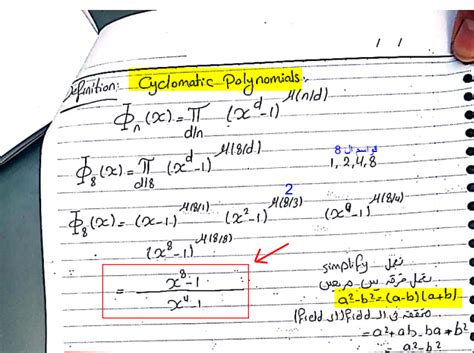 Definition: Cyclomatic Polynomials:
Φₙ(x) = π_{d|n} (x^d - 1)^{μ(n/d)}
Φ₈(x) = π_{d|8} (x^d - 1)^{μ(8/d)}
قواسم ال 8
1, 2, 4, 8
2
Φ₈(x) = (x-1)^{μ(8/1)} (x²-1)^{μ(8/3)} (x⁴-1)^{μ(8/4)}
(x⁸-1)^{μ(8/8)}
= x⁸-1 / x⁴-1
simplify نعمل
نعمل فرق بين مربعين
a²-b² = (a-b)(a+b)
field ال field
= a² + ab - ba + b²
= a² - b²